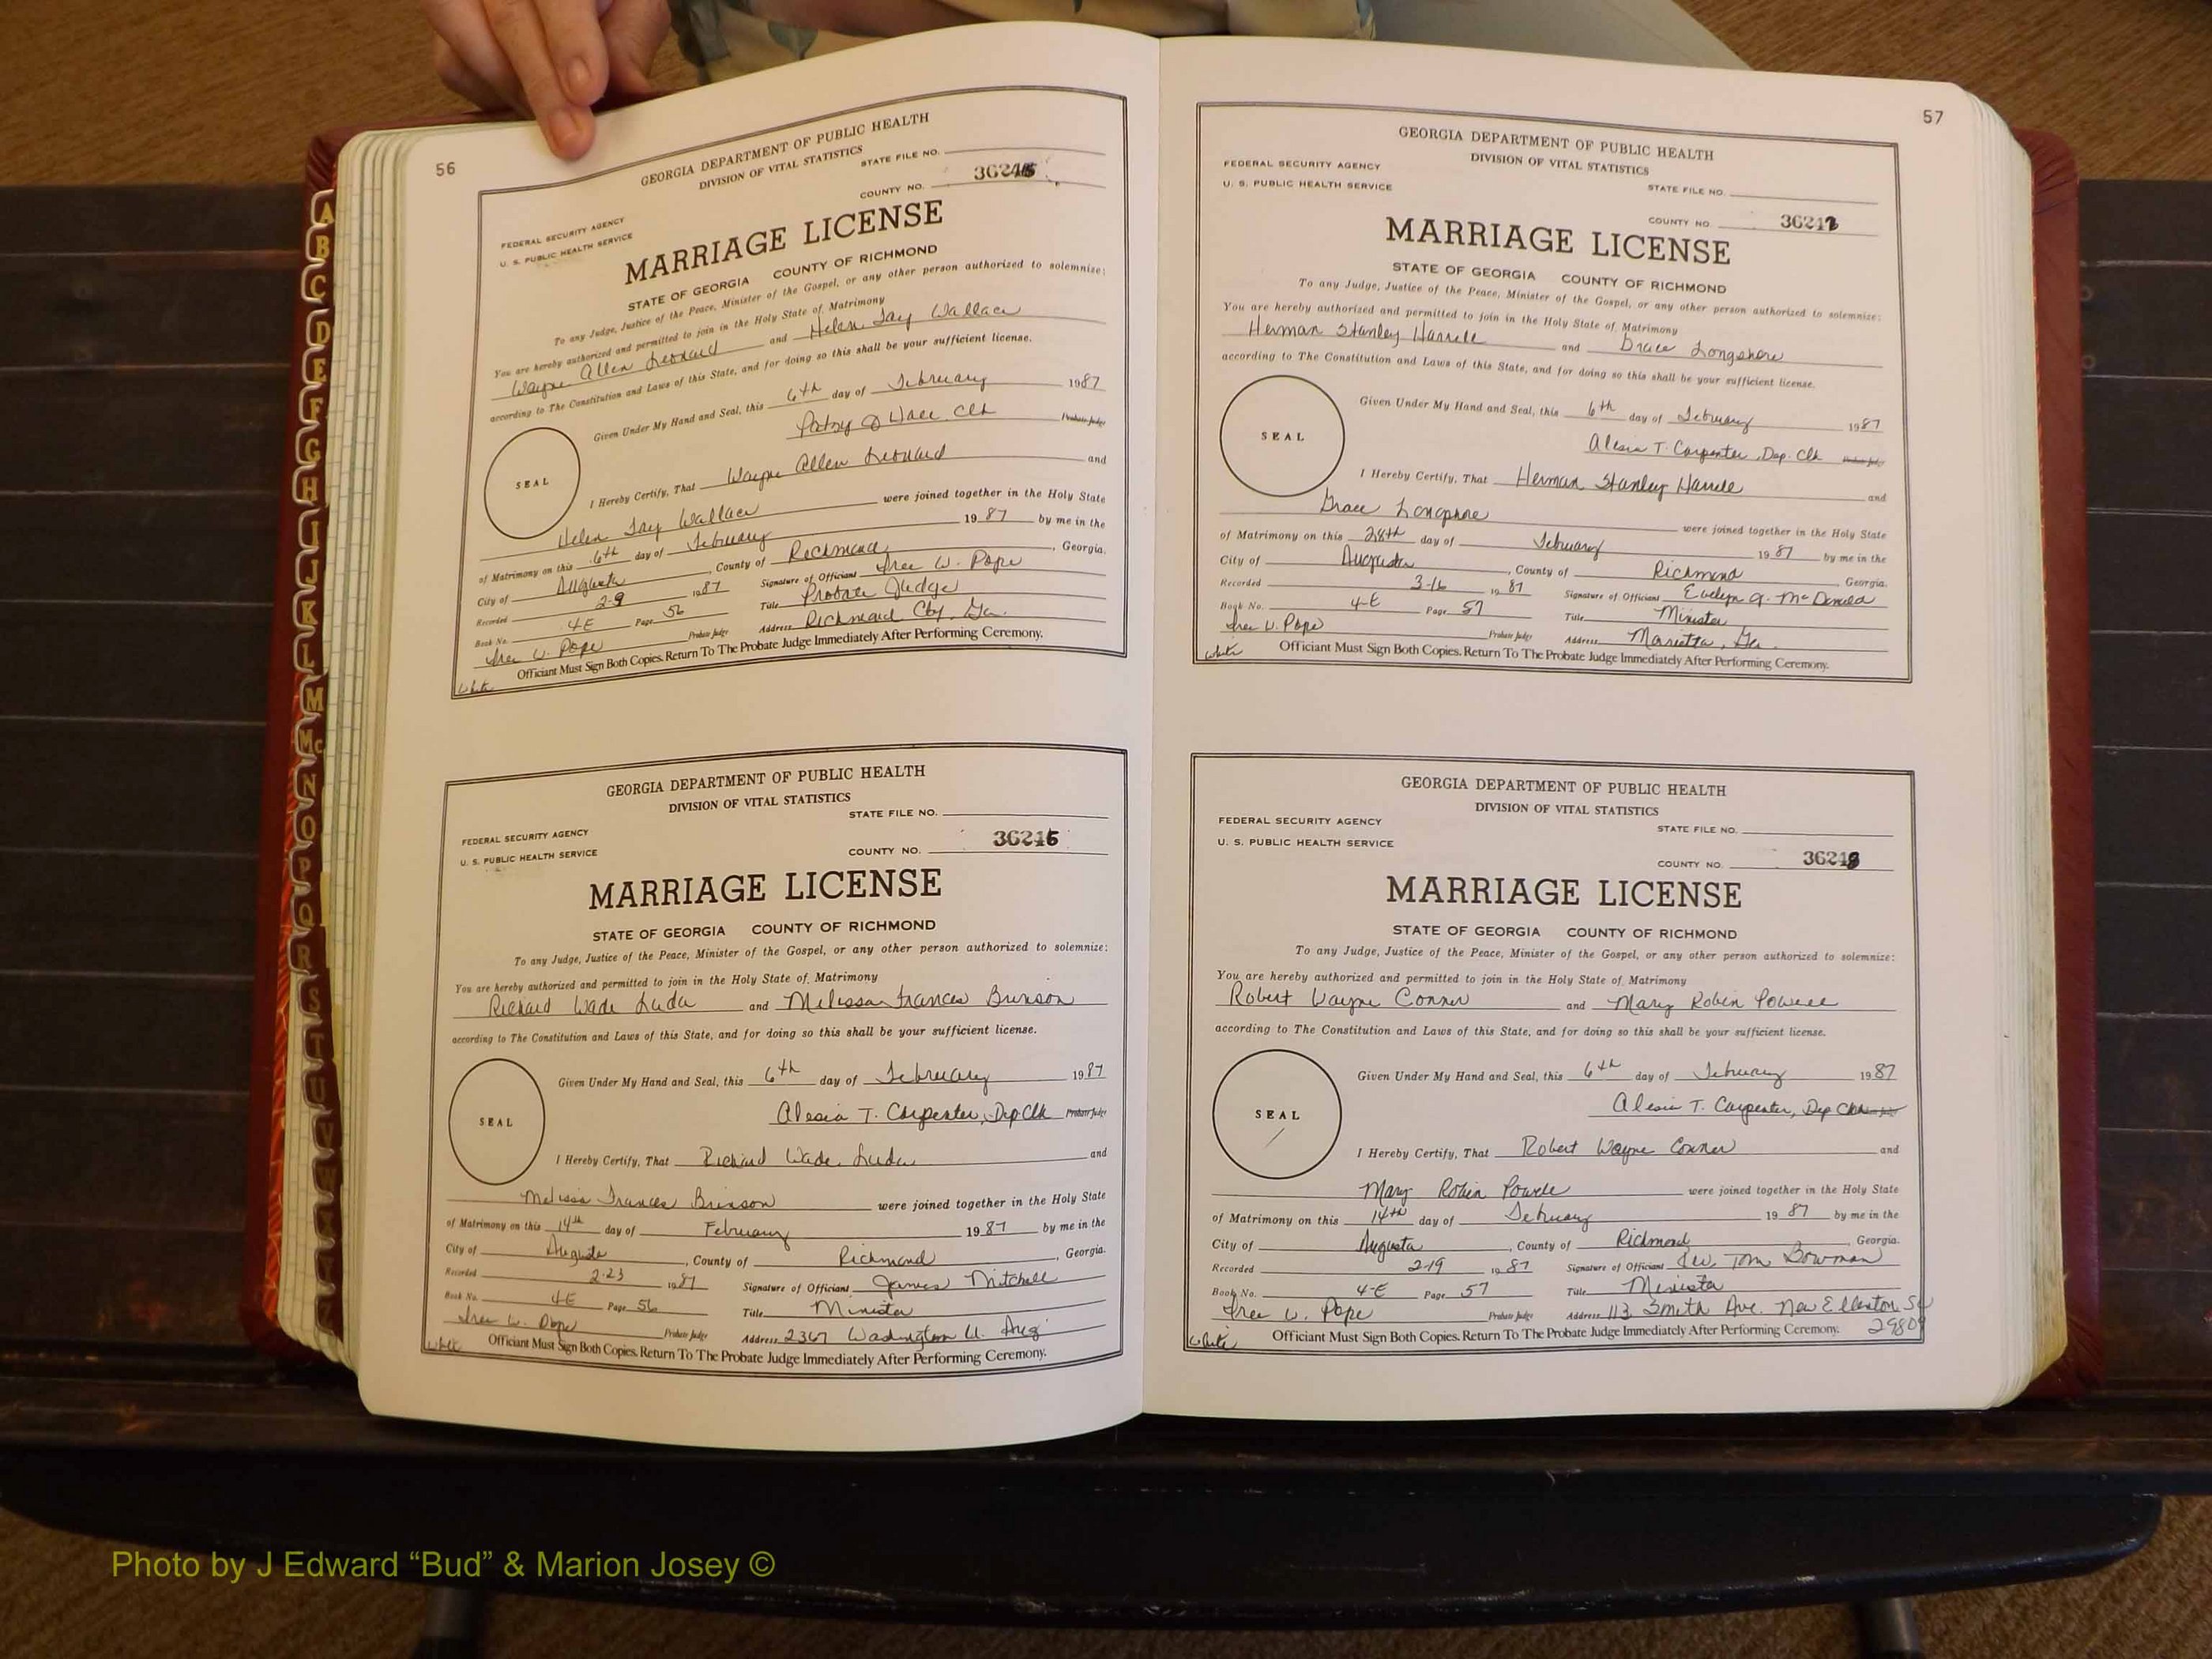 56
GEORGIA DEPARTMENT OF PUBLIC HEALTH
DIVISION OF VITAL STATISTICS
STATE FILE NO.
FEDERAL SECURITY AGENCY
U. S. PUBLIC HEALTH SERVICE
COUNTY NO.
MARRIAGE LICENSE
STATE OF GEORGIA COUNTY OF RICHMOND
To any Judge, Justice of the Peace, Minister of the Gospel, or any other person authorized to solemnize:
You are hereby authorized and permitted to join in the Holy State of Matrimony
Wayne Allen Leonard and Helen Jay Wallace
according to The Constitution and Laws of this State, and for doing so this shall be your sufficient license.
Given Under My Hand and Seal, this 6th day of February 1987
Patsy Clk Probate Judge
SEAL
I Hereby Certify, That Wayne Allen Leonard and
Helen Jay Wallace were joined together in the Holy State
of Matrimony on this 6th day of February 1987 by me in the
City of Augusta, County of Richmond, Georgia.
Recorded 2-9 1987 Signature of Officiant W. Pope
Book No. 4E Page 56 Title Probate Judge
W. Pope Probate Judge Address Richmond Cty, Ga.
Officiant Must Sign Both Copies. Return To The Probate Judge Immediately After Performing Ceremony.
White
GEORGIA DEPARTMENT OF PUBLIC HEALTH
DIVISION OF VITAL STATISTICS
STATE FILE NO.
FEDERAL SECURITY AGENCY
U. S. PUBLIC HEALTH SERVICE
COUNTY NO. 36246
MARRIAGE LICENSE
STATE OF GEORGIA COUNTY OF RICHMOND
To any Judge, Justice of the Peace, Minister of the Gospel, or any other person authorized to solemnize:
You are hereby authorized and permitted to join in the Holy State of Matrimony
Richard Wade and Melissa Frances Brinson
according to The Constitution and Laws of this State, and for doing so this shall be your sufficient license.
Given Under My Hand and Seal, this 6th day of February 1987
Alesia T. Carpenter, Dep Clk Probate Judge
SEAL
I Hereby Certify, That Richard Wade and
Melissa Frances Brinson were joined together in the Holy State
of Matrimony on this 14th day of February 1987 by me in the
City of Augusta, County of Richmond, Georgia.
Recorded 2-23 1987 Signature of Officiant James Mitchell
Book No. 4E Page 56 Title Minister
W. Pope Probate Judge Address 2367 Washington Aug
Officiant Must Sign Both Copies. Return To The Probate Judge Immediately After Performing Ceremony.
White
57
GEORGIA DEPARTMENT OF PUBLIC HEALTH
DIVISION OF VITAL STATISTICS
FEDERAL SECURITY AGENCY
U. S. PUBLIC HEALTH SERVICE
STATE FILE NO.
COUNTY NO.
MARRIAGE LICENSE
STATE OF GEORGIA COUNTY OF RICHMOND
To any Judge, Justice of the Peace, Minister of the Gospel, or any other person authorized to solemnize:
You are hereby authorized and permitted to join in the Holy State of Matrimony
Herman Stanley Harrell and Grace Longshore
according to The Constitution and Laws of this State, and for doing so this shall be your sufficient license.
Given Under My Hand and Seal, this 6th day of February 1987
Alesia T. Carpenter, Dep. Clk
SEAL
I Hereby Certify, That Herman Stanley Harrell and
Grace Longshore were joined together in the Holy State
of Matrimony on this 28th day of February 1987 by me in the
City of Augusta, County of Richmond, Georgia.
Recorded 3-16 1987 Signature of Officiant Evelyn A. McDonald
Book No. 4-E Page 57 Title Minister
W. Pope Probate Judge Address Marietta, Ga.
Officiant Must Sign Both Copies. Return To The Probate Judge Immediately After Performing Ceremony.
White
GEORGIA DEPARTMENT OF PUBLIC HEALTH
DIVISION OF VITAL STATISTICS
FEDERAL SECURITY AGENCY
U. S. PUBLIC HEALTH SERVICE
STATE FILE NO.
COUNTY NO.
MARRIAGE LICENSE
STATE OF GEORGIA COUNTY OF RICHMOND
To any Judge, Justice of the Peace, Minister of the Gospel, or any other person authorized to solemnize:
You are hereby authorized and permitted to join in the Holy State of Matrimony
Robert Wayne Conner and Mary Robin Powell
according to The Constitution and Laws of this State, and for doing so this shall be your sufficient license.
Given Under My Hand and Seal, this 6th day of February 1987
Alesia T. Carpenter, Dep Clk
SEAL
I Hereby Certify, That Robert Wayne Conner and
Mary Robin Powell were joined together in the Holy State
of Matrimony on this 14th day of February 1987 by me in the
City of Augusta, County of Richmond, Georgia.
Recorded 2-19 1987 Signature of Officiant Rev. Tom Bowman
Book No. 4-E Page 57 Title Minister
W. Pope Probate Judge Address 113 Smith Ave. New Ellenton SC
Officiant Must Sign Both Copies. Return To The Probate Judge Immediately After Performing Ceremony.
White
A
B
C
D
E
F
G
H
I
J
K
L
M
Mc
N
O
P
Q
R
S
T
U
V
Photo by J Edward “Bud” & Marion Josey ©